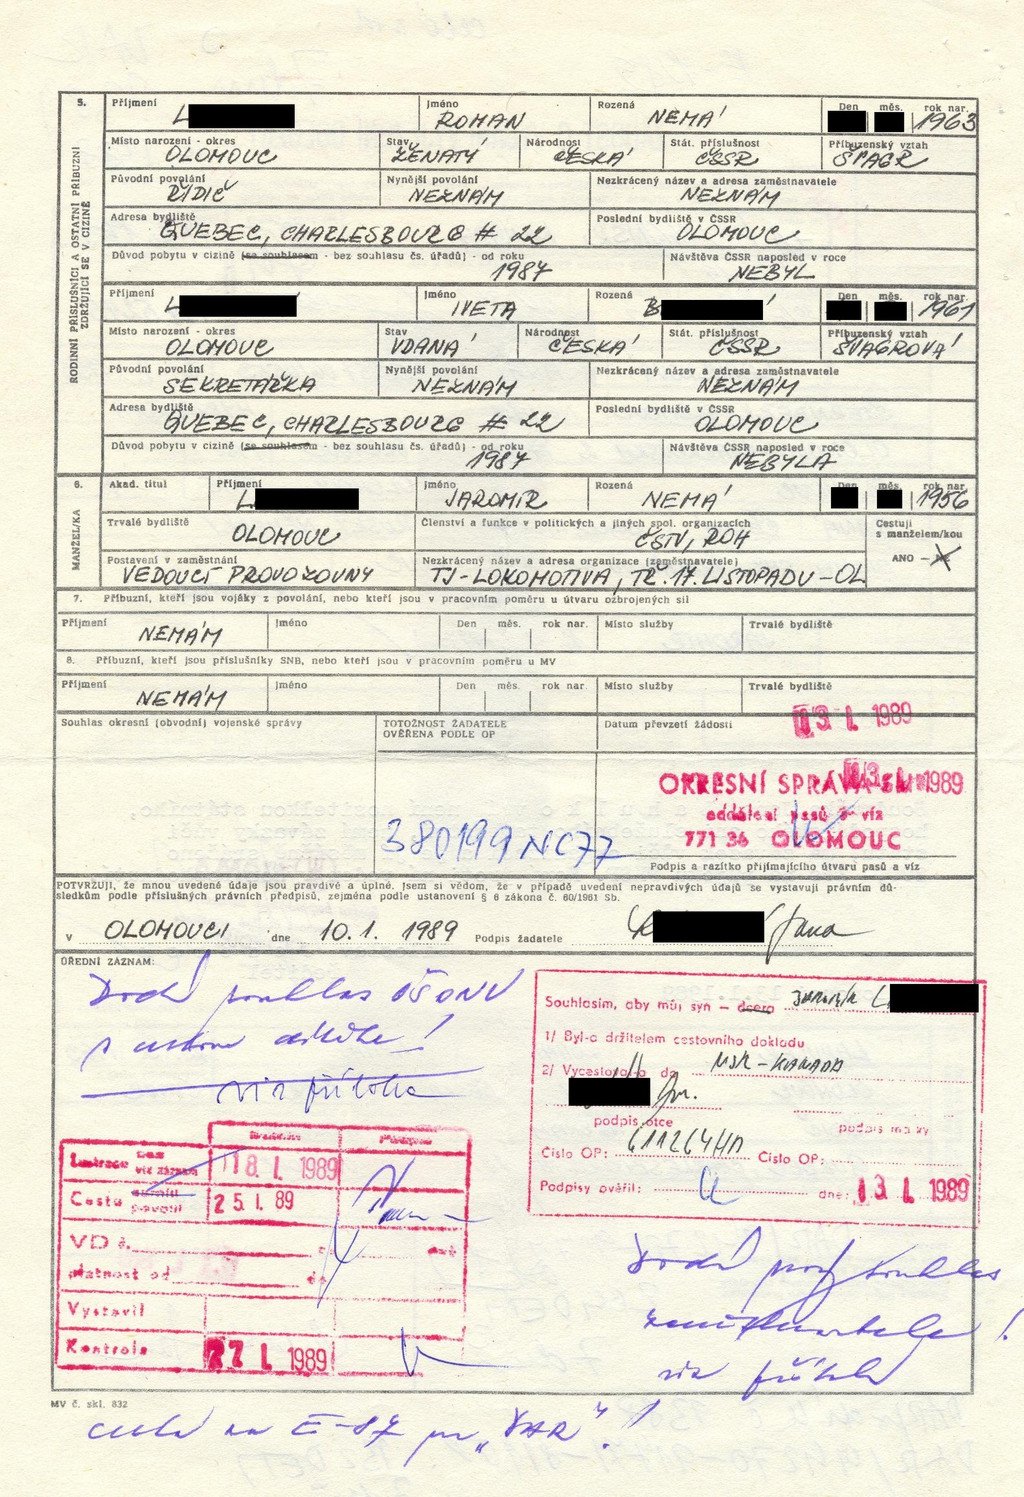 5.
RODINNÍ PŘÍSLUŠNÍCI A OSTATNÍ PŘÍBUZNÍ ZDRŽUJÍCÍ SE V CIZINĚ
Příjmení Jméno Rozená Den měs. rok nar.
L ROMAN NEMÁ 1963
Místo narození - okres Stav Národnost Stát. příslušnost Příbuzenský vztah
OLOMOUC ŽENATÝ ČESKÁ ČSSR ŠVAGR
Původní povolání Nynější povolání Nezkrácený název a adresa zaměstnavatele
ŘIDIČ NEZNÁM NEZNÁM
Adresa bydliště Poslední bydliště v ČSSR
QUEBEC, CHARLESBOURG # 22 OLOMOUC
Důvod pobytu v cizině (se souhlasem - bez souhlasu čs. úřadů) - od roku Návštěva ČSSR naposled v roce
1987 NEBYL
Příjmení Jméno Rozená Den měs. rok nar.
L IVETA B 1961
Místo narození - okres Stav Národnost Stát. příslušnost Příbuzenský vztah
OLOMOUC VDANÁ ČESKÁ ČSSR ŠVAGROVÁ
Původní povolání Nynější povolání Nezkrácený název a adresa zaměstnavatele
SEKRETÁŘKA NEZNÁM NEZNÁM
Adresa bydliště Poslední bydliště v ČSSR
QUEBEC, CHARLESBOURG # 22 OLOMOUC
Důvod pobytu v cizině (se souhlasem - bez souhlasu čs. úřadů) - od roku Návštěva ČSSR naposled v roce
1987 NEBYLA
6.
MANŽEL/KA
Akad. titul Příjmení Jméno Rozená Den měs. rok nar.
L JAROMÍR NEMÁ 1956
Trvalé bydliště Členství a funkce v politických a jiných spol. organizacích Cestuji s manželem/kou
OLOMOUC ČSTV, ROH ANO -
Postavení v zaměstnání Nezkrácený název a adresa organizace (zaměstnavatele)
VEDOUCÍ PROVOZOVNY TJ-LOKOMOTIVA, TŘ. 17. LISTOPADU-OL
7. Příbuzní, kteří jsou vojáky z povolání, nebo kteří jsou v pracovním poměru u útvaru ozbrojených sil
Příjmení Jméno Den měs. rok nar. Místo služby Trvalé bydliště
NEMÁM
8. Příbuzní, kteří jsou příslušníky SNB, nebo kteří jsou v pracovním poměru u MV
Příjmení Jméno Den měs. rok nar. Místo služby Trvalé bydliště
NEMÁM
Souhlas okresní (obvodní) vojenské správy TOTOŽNOST ŽADATELE OVĚŘENA PODLE OP Datum převzetí žádosti
13. I. 1989
OKRESNÍ SPRÁVA SNB
13. I. 1989
oddělení pasů a víz
771 36 OLOMOUC
380199 NC77
Podpis a razítko přijímajícího útvaru pasů a víz
POTVRZUJI, že mnou uvedené údaje jsou pravdivé a úplné. Jsem si vědom, že v případě uvedení nepravdivých údajů se vystavuji právním dů-
sledkům podle příslušných právních předpisů, zejména podle ustanovení § 6 zákona č. 60/1961 Sb.
v OLOMOUCI dne 10.1. 1989 Podpis žadatele Jana
ÚŘEDNÍ ZÁZNAM:
Dodá souhlas OŠONV
viz příloha
Souhlasím, aby můj syn - dcera Jaromír L
1/ Byl-a držitelem cestovního dokladu
2/ Vycestoval-a do NSR-KANADA
podpis otce podpis matky
Číslo OP: 611264HA Číslo OP:
Podpisy ověřil: dne: 13. I. 1989
Lustrace viz záznam 18. I. 1989
Cestu povolil 25. I. 89
VD č.
platnost od do
Vystavil
Kontrola 27. I. 1989
Dodá souhlas
zaměstnavatele!
viz příloha
MV č. skl. 832